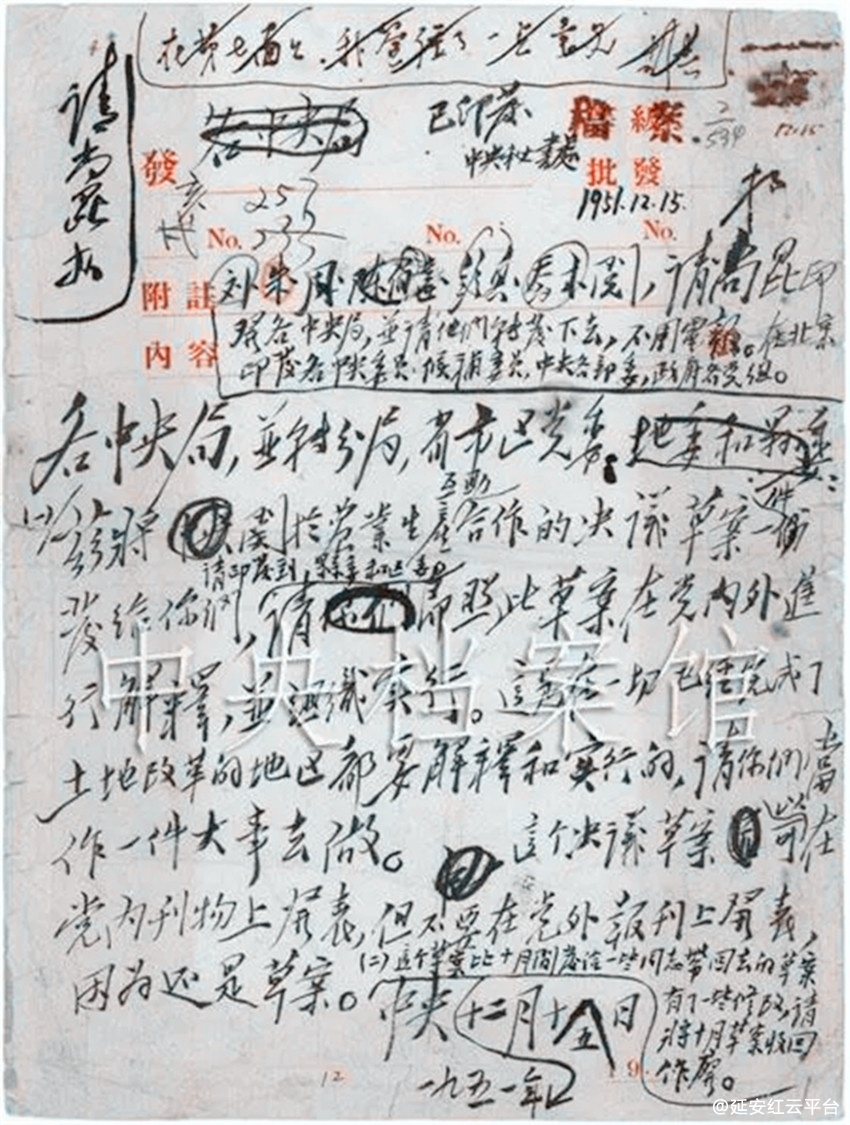 在第七页上,我管理了一点意见
请尚昆办
发
各中央局
已印发
中央秘书处
档案
2
534
12.15
批发
1951.12.15.
No. 257
235
No.
No.
附註
刘、朱、周、陈、彭真、伯达阅,请尚昆印
内容
发各中央局,並请他们转发下去,不用电报。在北京
印发各中央委员、候补委员,中央各部委,政府各党组。
各中央局,並转分局,省市区党委。地委和县委:
(一)兹将 关於农业生产互助合作的决议草案一件
发给你们,请印发到县委和区委
请你们即照此草案在党内外進
行解釋,並組織实行。這是在一切已经完成了
土地改革的地区都要解釋和实行的,请你们當
作一件大事去做。這个决议草案可以在
党内刊物上发表,但不要在党外報刊上发表,
因为还是草案。
(二)这个草案比十月间发给一些同志带回去的草案
有了一些修改,请
将十月草案收回
作廢。
中央 十二月十五日
一九五一年
12
9.
中央档案馆
@延安红云平台